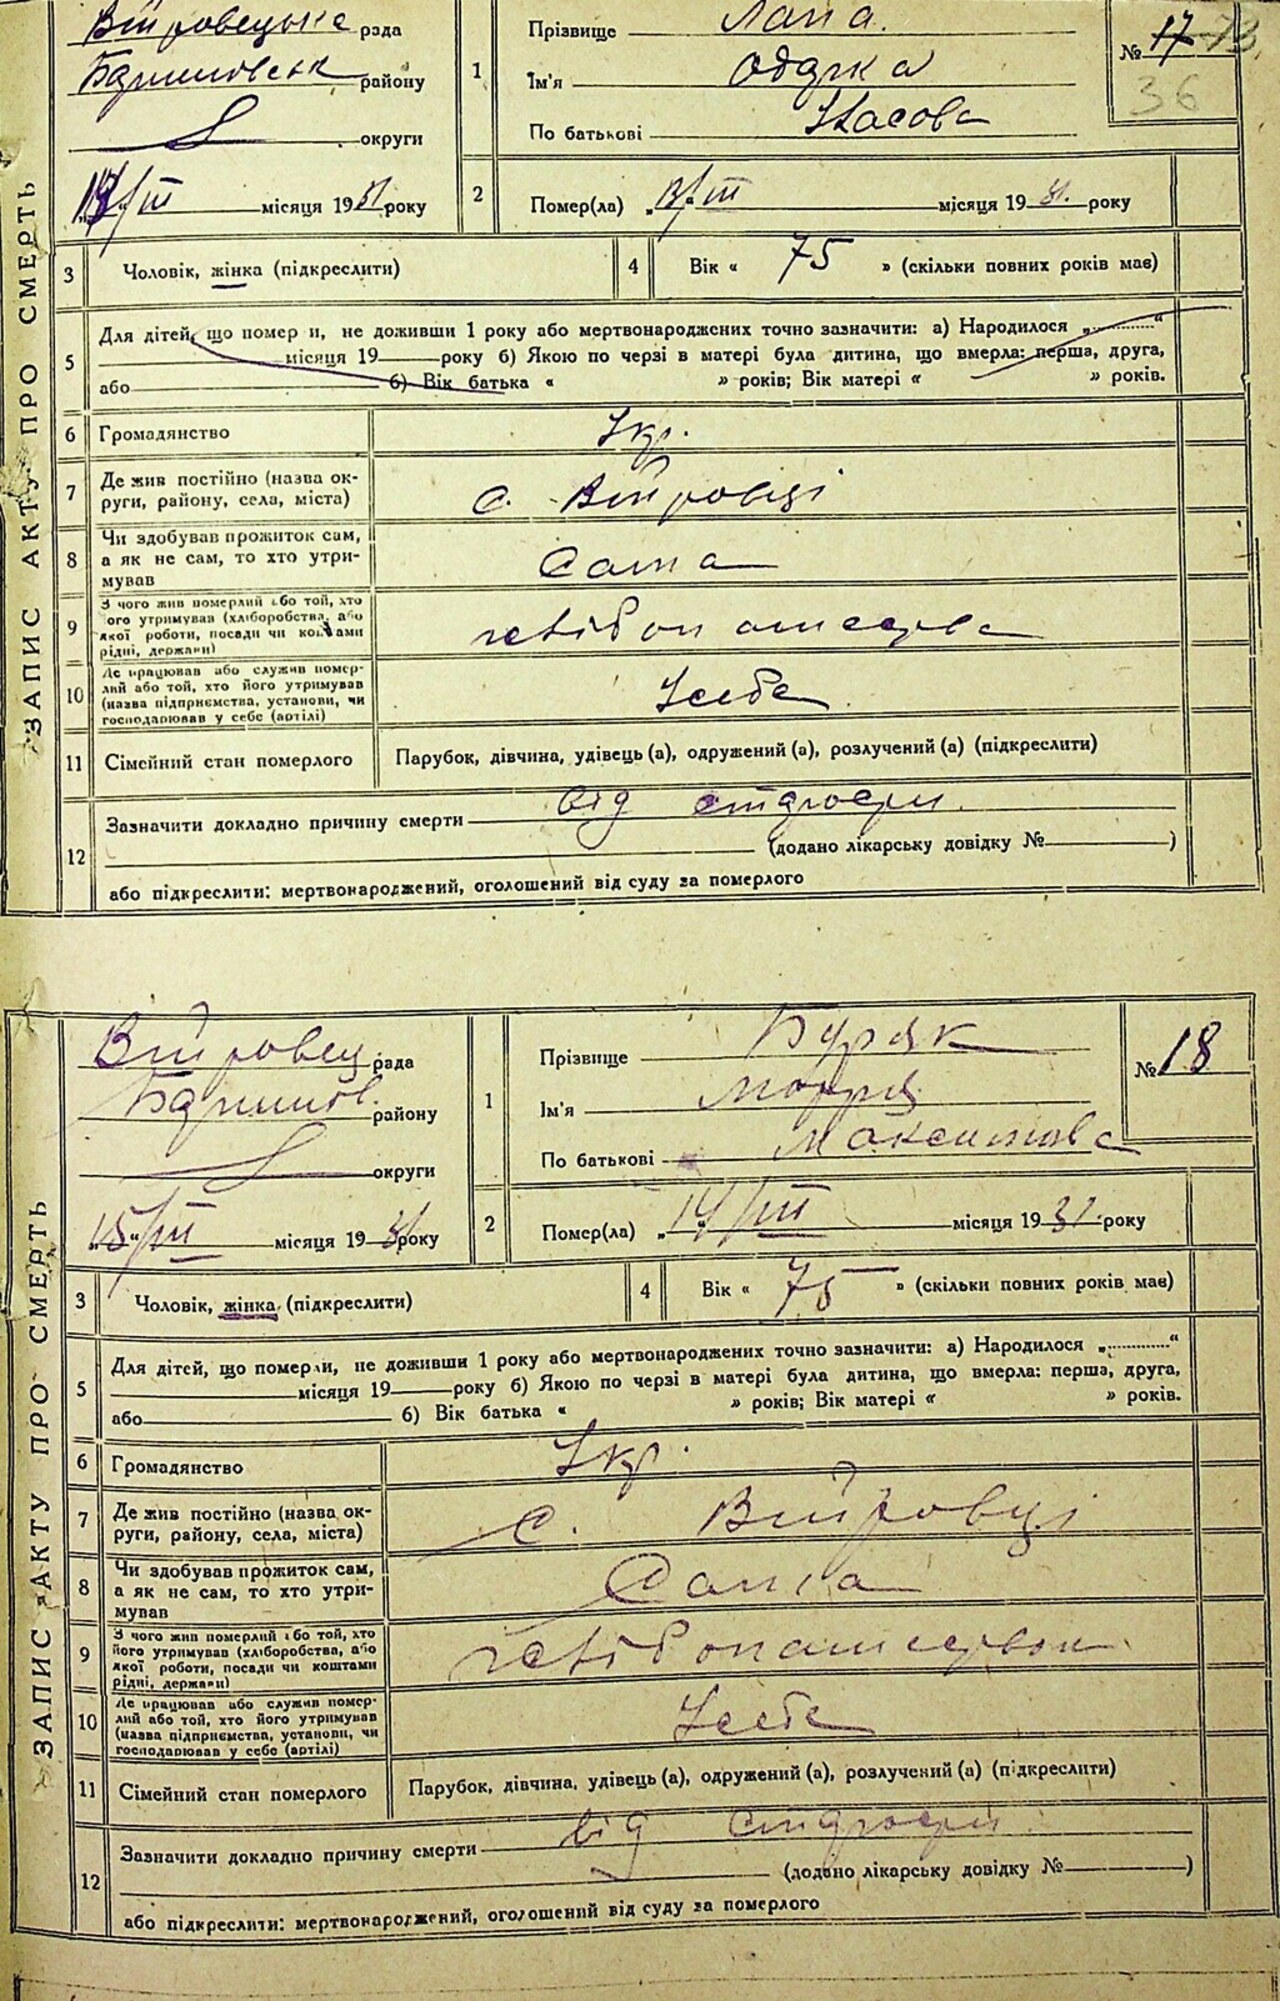 ЗАПИС АКТУ ПРО СМЕРТЬ
Війтовецька рада
району
округи
/III місяця 1931 року
1
Прізвище Лапа.
Ім'я Одарка
По батькові
№ 17
36
2
Помер(ла) „13/III місяця 1931. року
3 Чоловік, жінка (підкреслити)
4 Вік « 75 » (скільки повних років має)
5 Для дітей, що помер и, не доживши 1 року або мертвонароджених точно зазначити: а) Народилося „............“
місяця 19 року б) Якою по черзі в матері була дитина, що вмерла: перша, друга,
або б) Вік батька « » років; Вік матері « » років.
6 Громадянство Укр.
7 Де жив постійно (назва ок-
руги, району, села, міста) с. Війтовці
8 Чи здобував прожиток сам,
а як не сам, то хто утри-
мував Сама
9 З чого жив померлий або той, хто
ого утримував (хліборобства, або
якої роботи, посади чи коштами
рідні, держави)
10 Де працював або служив помер-
лий або той, хто його утримував
(назва підприємства, установи, чи
господарював у себе (артілі) У себе
11 Сімейний стан померлого Парубок, дівчина, удівець (а), одружений (а), розлучений (а) (підкреслити)
12 Зазначити докладно причину смерти від старости.
(додано лікарську довідку № )
або підкреслити: мертвонароджений, оголошений від суду за померлого
ЗАПИС АКТУ ПРО СМЕРТЬ
Війтовец рада
району
округи
„15“/III місяця 1931 року
1
Прізвище Буряк
Ім'я
По батькові Максимова
№ 18
2
Помер(ла) „14/III місяця 1931. року
3 Чоловік, жінка (підкреслити)
4 Вік « 75 » (скільки повних років має)
5 Для дітей, що померли, не доживши 1 року або мертвонароджених точно зазначити: а) Народилося „............“
місяця 19 року б) Якою по черзі в матері була дитина, що вмерла: перша, друга,
або б) Вік батька « » років; Вік матері « » років.
6 Громадянство Укр.
7 Де жив постійно (назва ок-
руги, району, села, міста) с. Війтовці
8 Чи здобував прожиток сам,
а як не сам, то хто утри-
мував Сама
9 З чого жив померлий або той, хто
його утримував (хліборобства, або
якої роботи, посади чи коштами
рідні, держави)
10 Де працював або служив помер-
лий або той, хто його утримував
(назва підприємства, установи, чи
господарював у себе (артілі) У себе
11 Сімейний стан померлого Парубок, дівчина, удівець (а), одружений (а), розлучений (а) (підкреслити)
12 Зазначити докладно причину смерти від старости.
(додано лікарську довідку № )
або підкреслити: мертвонароджений, оголошений від суду за померлого